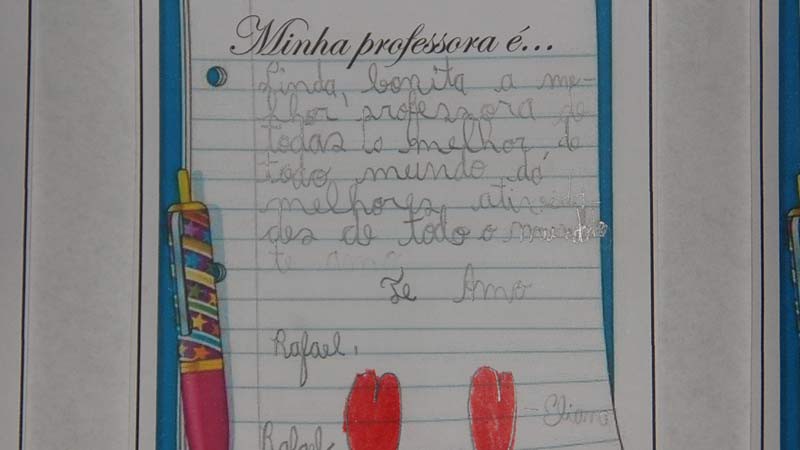 Minha professora é...
Linda, bonita a me-
lhor professora de
todas lo melhor do
todo mundo, dá
melhores ativida
des de todo o mundo
te amo
Te Amo
Rafael.
Eliana
Rafael